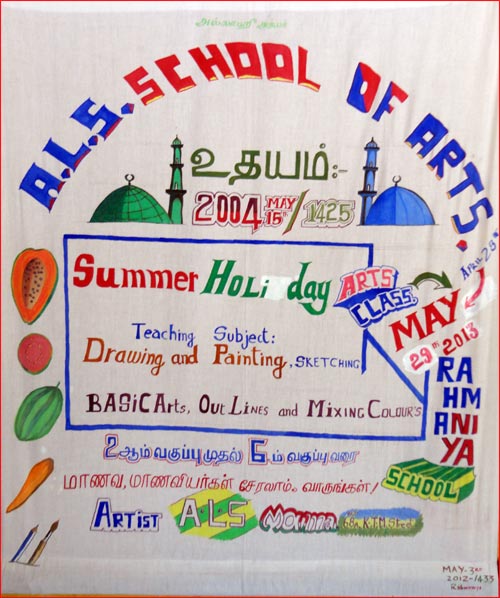 A.L.S. SCHOOL OF ARTS.
உதயம்:-
2004 MAY 15th / 1425
Summer HOLIday ARTS CLASS.
April 28th
MAY
29th 2013
Teaching Subject:
Drawing and Painting, SKETCHING
BASIC Arts, Out Lines and Mixing Colour's
RAHMANIYA
SCHOOL
2ஆம் வகுப்பு முதல் 6ம் வகுப்பு வரை
மாணவ, மாணவியர்கள் சேரலாம். வாருங்கள்!
Artist ALS
MAY. 3RD
2012-1433